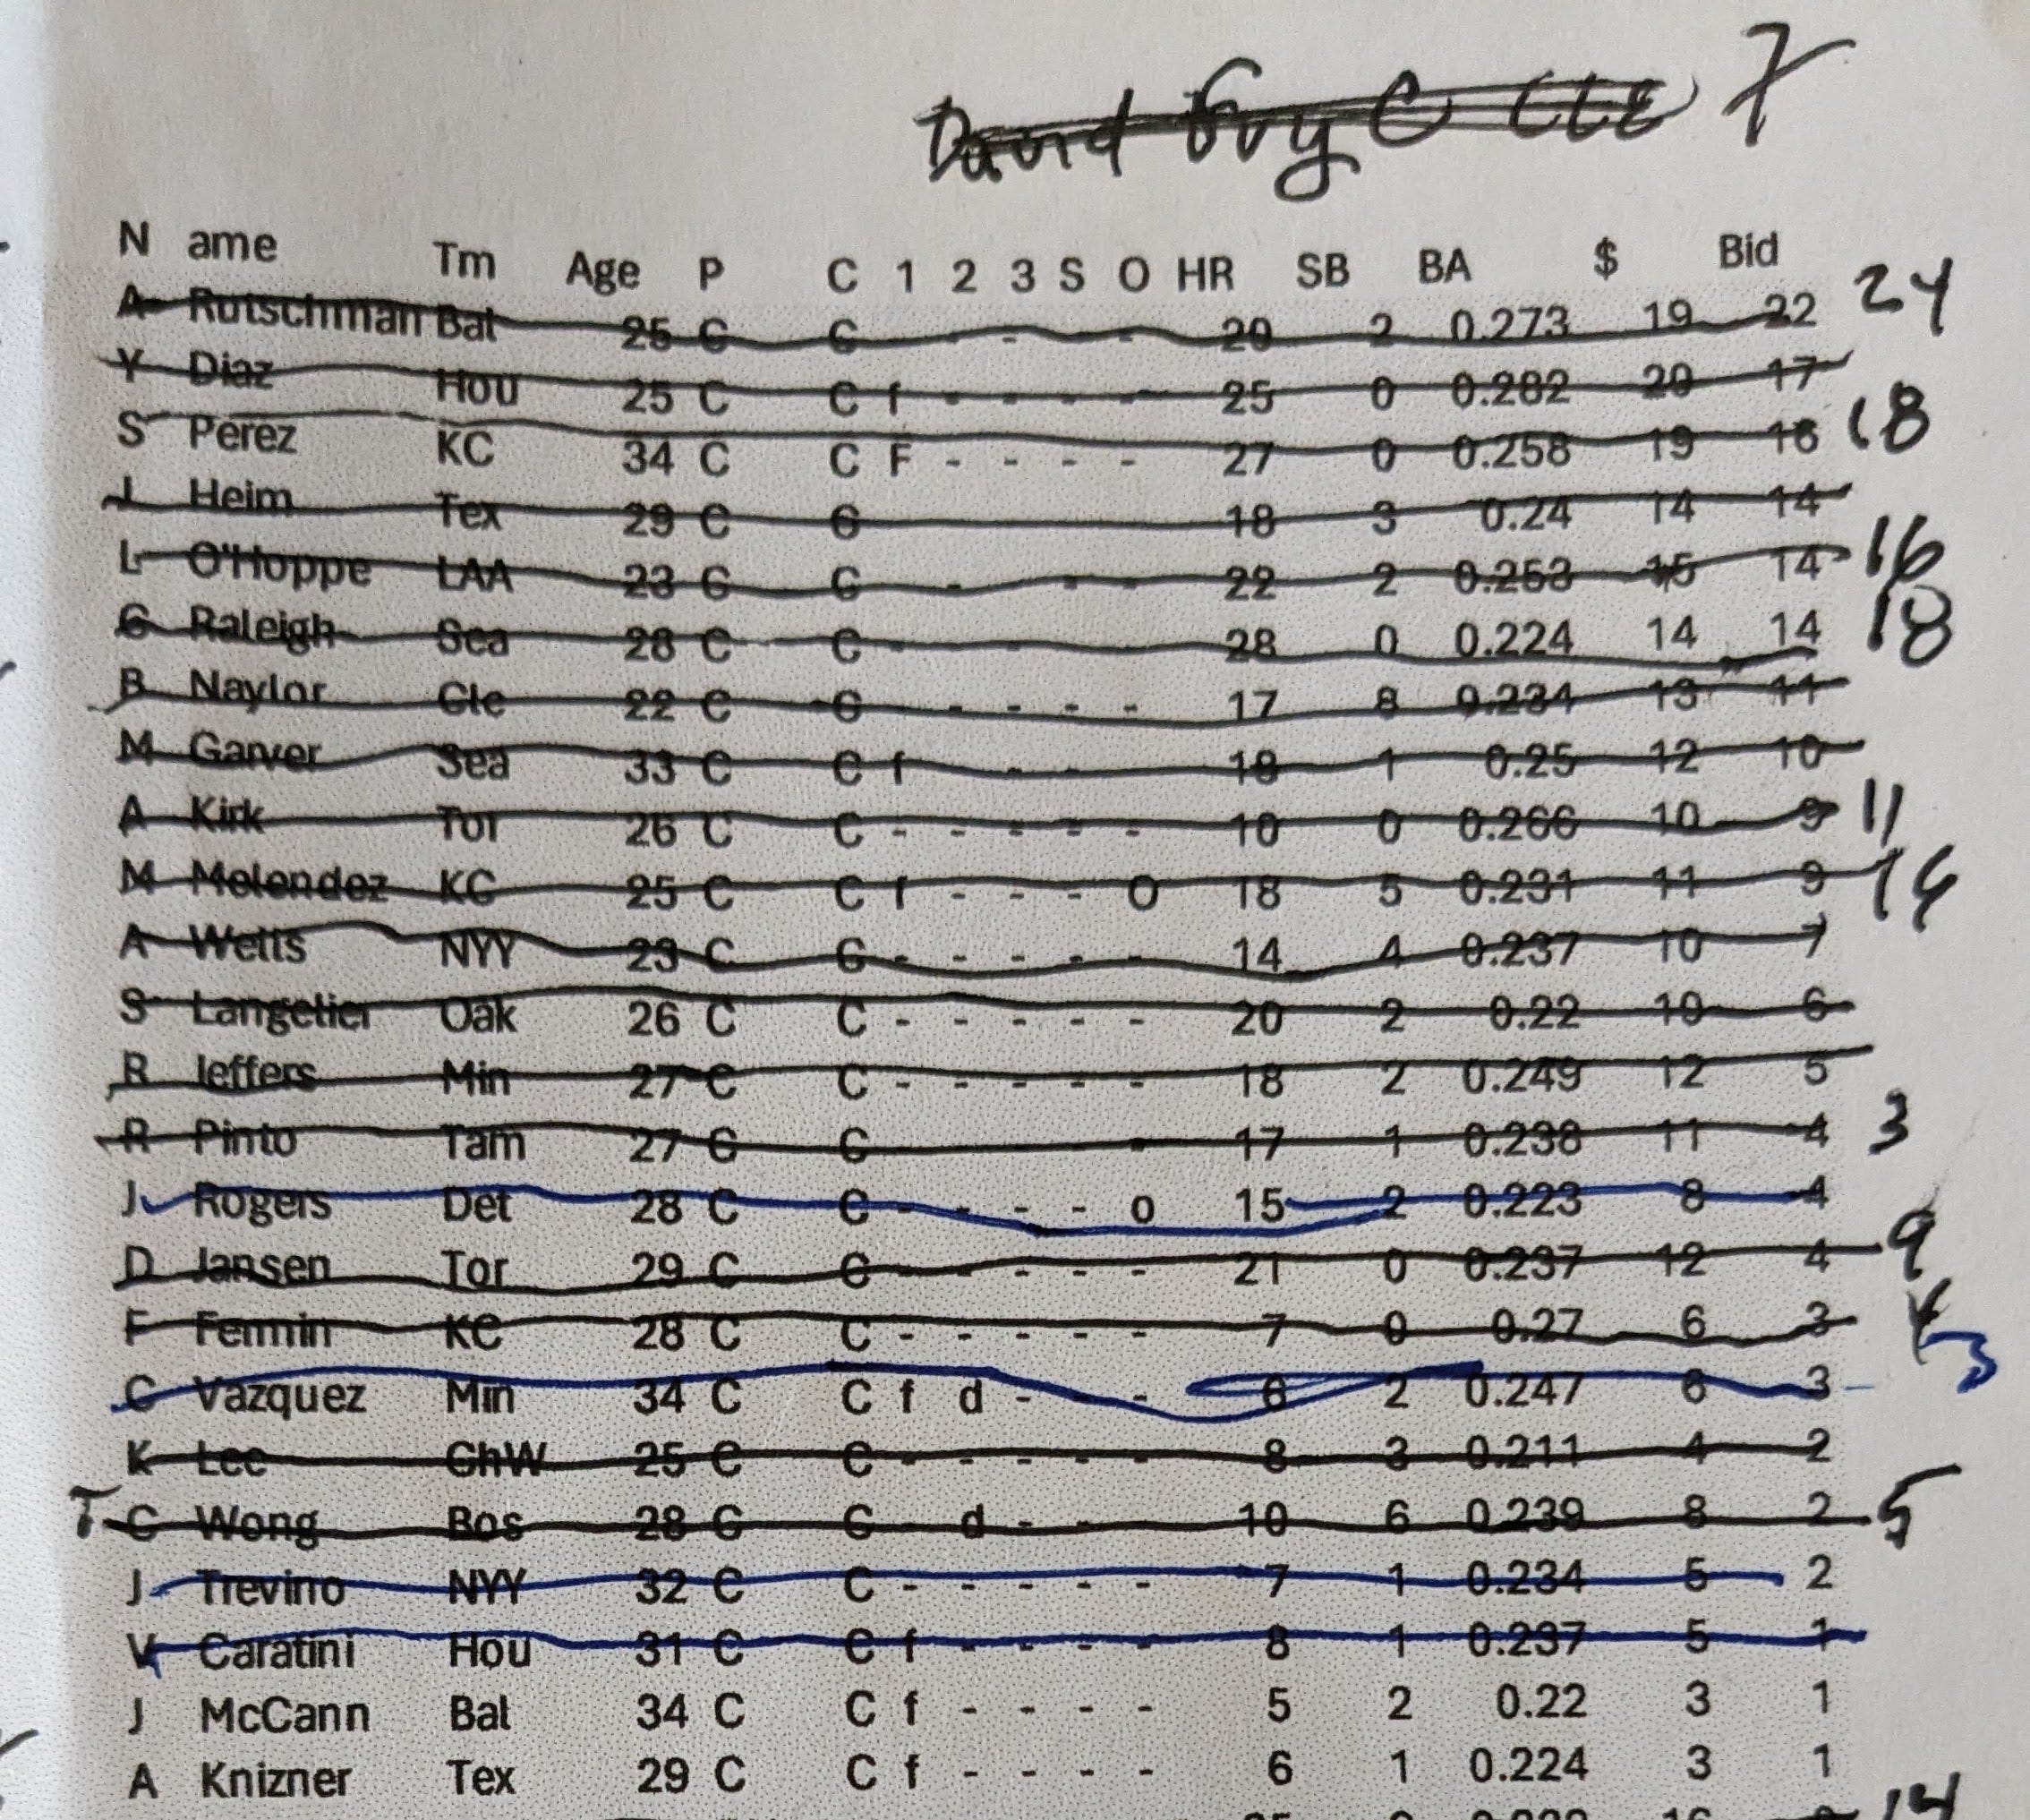 David Fry C CLE 7
N ame Tm Age P C 1 2 3 S O HR SB BA $ Bid
A Rutschman Bal 25 C C - - - 20 2 0.273 19 22 24
Y Diaz Hou 25 C C f - - - - 25 0 0.282 20 17
S Perez KC 34 C C F - - - - 27 0 0.258 19 16 18
J Heim Tex 29 C C 18 3 0.24 14 14
L O'Hoppe LAA 23 C C - - - 22 2 0.253 15 14 16
C Raleigh Sea 28 C C - 28 0 0.224 14 14 18
B Naylor Cle 22 C C - - - - 17 8 0.234 13 11
M Garver Sea 33 C C f - - 18 1 0.25 12 10
A Kirk Tor 26 C C - - - - - 10 0 0.266 10 9 11
M Melendez KC 25 C C f - - - O 18 5 0.231 11 9
A Wells NYY 23 C C - - - - - 14 4 0.237 10 7
S Langelier Oak 26 C C - - - - - 20 2 0.22 10 6
R Jeffers Min 27 C C - - - - - 18 2 0.249 12 5
R Pinto Tam 27 C C - 17 1 0.238 11 4 3
J Rogers Det 28 C C - - - - o 15 2 0.223 8 4
D Jansen Tor 29 C C - - - - - 21 0 0.237 12 4 9
F Fermin KC 28 C C - - - - - 7 0 0.27 6 3
C Vazquez Min 34 C C f d - - - 6 2 0.247 6 3 3
K Lee ChW 25 C C - - - - - 8 3 0.211 4 2
T C Wong Bos 28 C C - d - - 10 6 0.239 8 2 5
J Trevino NYY 32 C C - - - - - 7 1 0.234 5 2
V Caratini Hou 31 C C f - - - - 8 1 0.237 5 1
J McCann Bal 34 C C f - - - - 5 2 0.22 3 1
A Knizner Tex 29 C C f - - - - 6 1 0.224 3 1
14